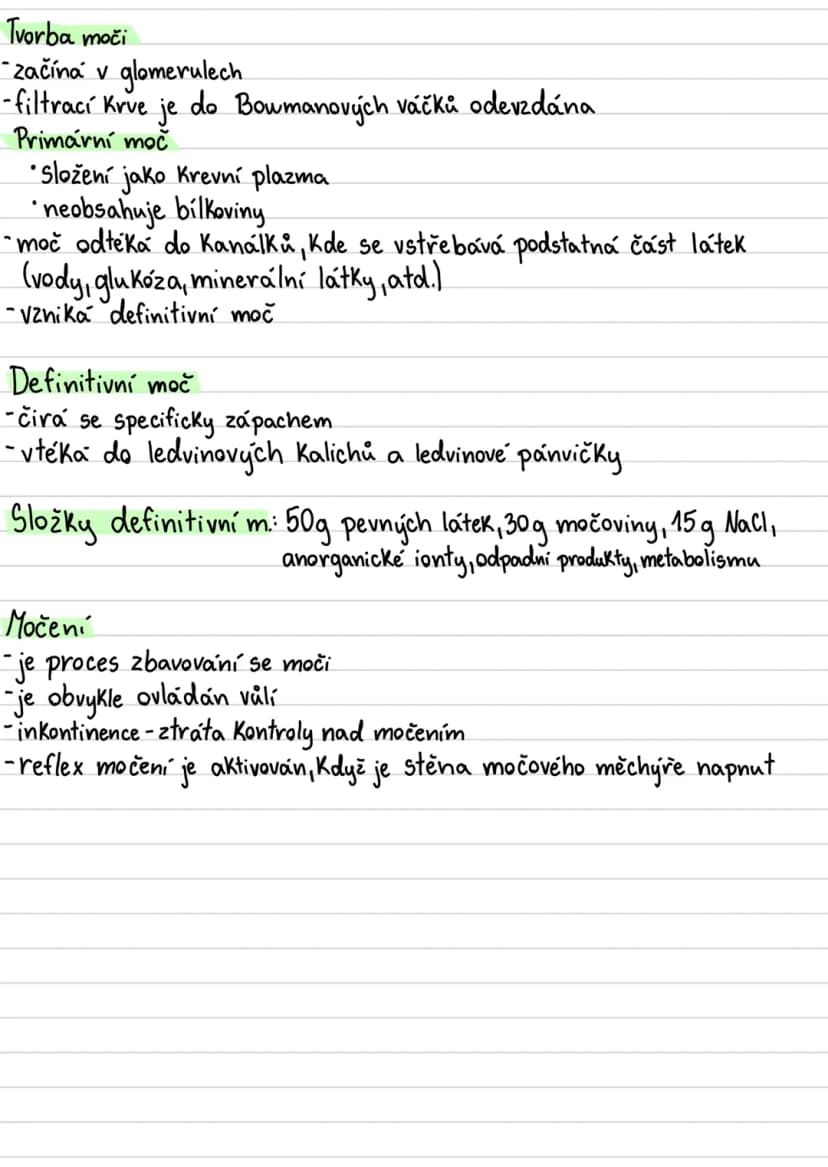 Tvorba moči
-začíná v glomerulech
-filtrací Krve je do Bowmanových váčků odevzdána
Primární moč
•složení jako Krevní plazma
•neobsahuje bílkoviny
-moč odtéká do Kanálků, Kde se vstřebává podstatná část látek
(vody, glukóza, minerální látky, atd.)
-vzniká definitivní moč
Definitivní moč
-čirá se specificky zápachem
-vtéká do ledvinových Kalichů a ledvinové pánvičky
Složky definitivní m.: 50g pevných látek, 30g močoviny, 15g NaCl,
anorganické ionty, odpadní produkty, metabolismu
Močení
-je proces zbavování se moči
-je obvykle ovládán vůlí
-inkontinence - ztráta Kontroly nad močením
-reflex močení je aktivován, Když je stěna močového měchýře napnut